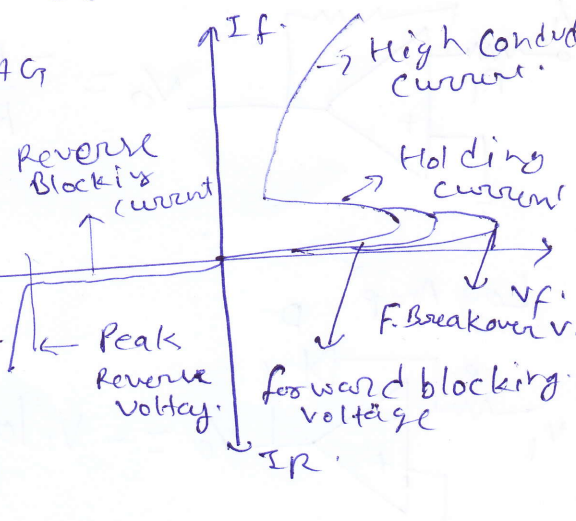 If.
AG
High Conduc
Current.
Reverse
Blockiy
Current
Holding
Current
Vf.
F. Breakover V.
Peak
Reverse
Voltay.
forward blocking.
voltage
IR.